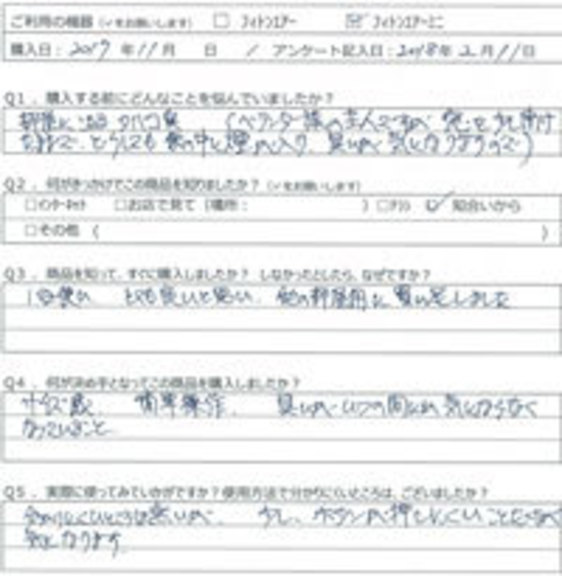 ご利用の機器 (✓をお願いします) □ フィトンエアー ☑ フィトンエアーミニ
購入日: 2017 年 11 月 日 / アンケート記入日: 2018 年 2 月 11 日
Q1 . 購入する前にどんなことを悩んでいましたか?
部屋に タバコ臭 (ベランダー
気になり
Q2 . 何がきっかけでこの商品を知りましたか? (✓をお願いします)
□インターネット □お店で見て (場所: ) □チラシ ☑ 知合いから
□その他 ( )
Q3 . 商品を知って、すぐに購入しましたか? しなかったとしたら、なぜですか?
1台使い とても良いと思い、他の部屋用に買い足しました
Q4 . 何が決め手となってこの商品を購入しましたか?
サイズ感、簡単操作、臭いが いつの間にか気にならなく
なっていること
Q5 . 実際に使ってみていかがですか?使用方法で分かりにくいところは、ございましたか?
分かりにくいところは無いが、少し、ボタンが押しにくいことだけが
気になります。